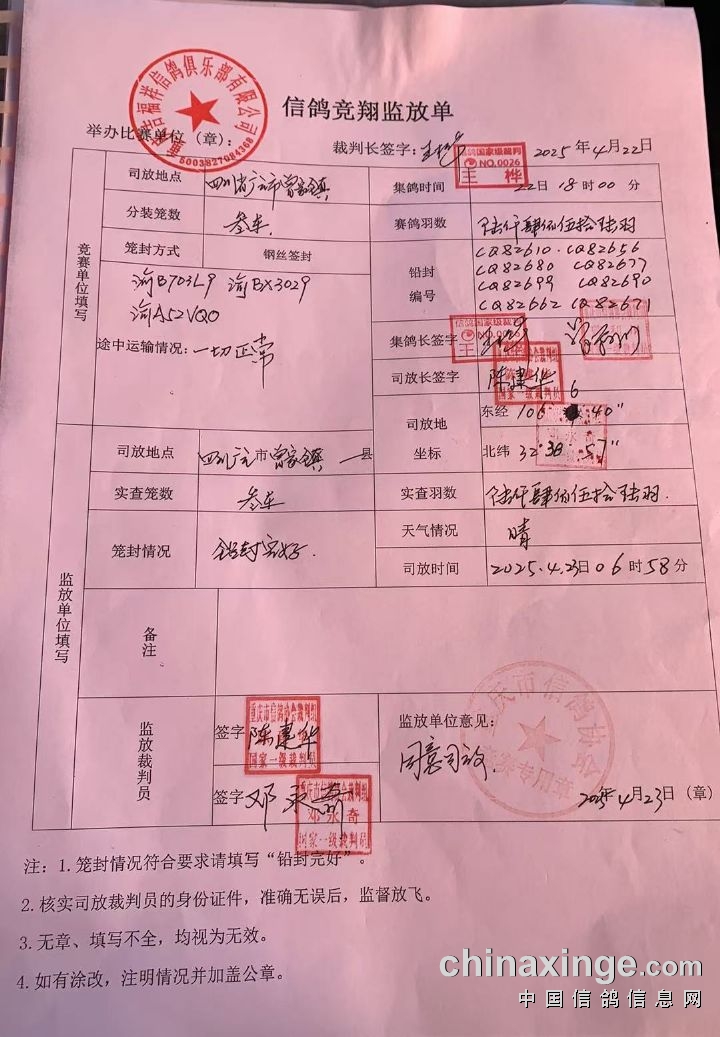 信鸽竞翔监放单
举办比赛单位（章）：
吉福祥信鸽俱乐部有限公司
5003827084368
裁判长签字：王桦 2025年4月22日
信鸽国家级裁判
NO.0026
王 桦
竞赛单位填写
司放地点 四川省广元市曾家镇
集鸽时间 22日18时00分
分装笼数 叁车.
赛鸽羽数 陆仟肆佰伍拾陆羽
笼封方式 钢丝签封
铅封编号
CQ82610. CQ82656
CQ82680 CQ82677
CQ82699 CQ82690
CQ82662 CQ82671
渝B703L9 渝BX3029
渝A52VQ0
途中运输情况：一切正常
集鸽长签字 王桦
司放长签字 陈建华
司放地坐标
东经 106 40"
北纬 32°38 57"
监放单位填写
司放地点 四川广元市曾家镇 县
实查笼数 叁车
实查羽数 陆仟肆佰伍拾陆羽.
笼封情况 铅封完好.
天气情况 晴
司放时间 2025.4.23日06时58分
备注
监放裁判员
签字 陈建华
重庆市信鸽协会裁判组
国家一级裁判员
签字 邓永奇
邓永奇
国家一级裁判员
监放单位意见：
同意司放
重庆市信鸽协会
竞赛专用章
2025年4月23日（章）
注：1.笼封情况符合要求请填写“铅封完好”。
2.核实司放裁判员的身份证件，准确无误后，监督放飞。
3.无章、填写不全，均视为无效。
4.如有涂改，注明情况并加盖公章。
chinaxinge.com
中国信鸽信息网